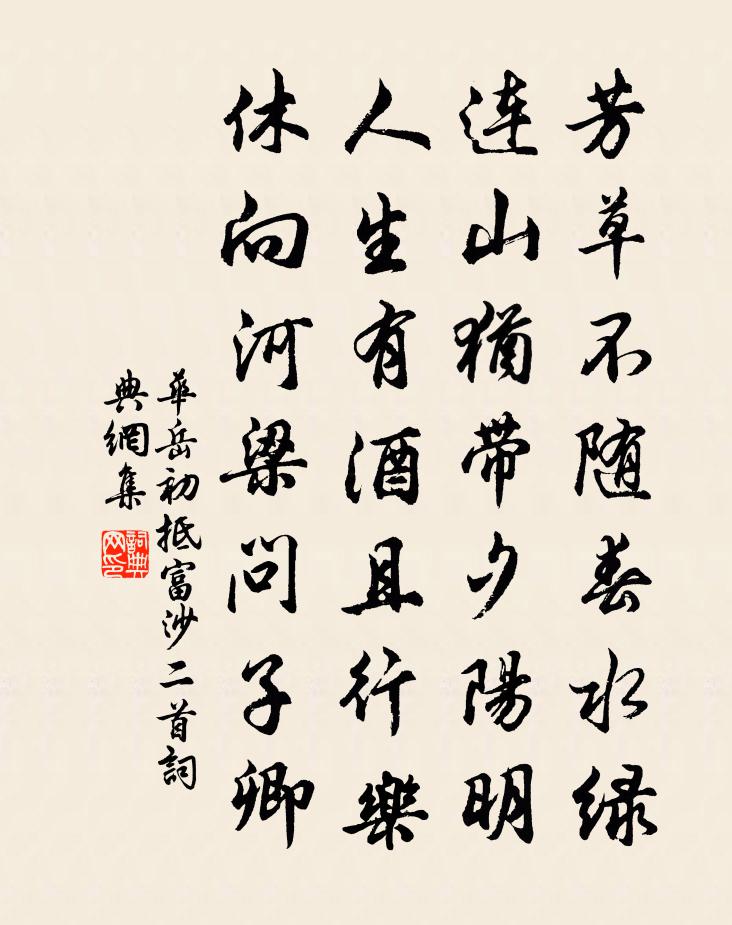 芳草不随春水绿
连山犹带夕陽明
人生有酒且行樂
休向河梁问子卿
華岳初抵富沙二首詞
典網集
詞典
网印